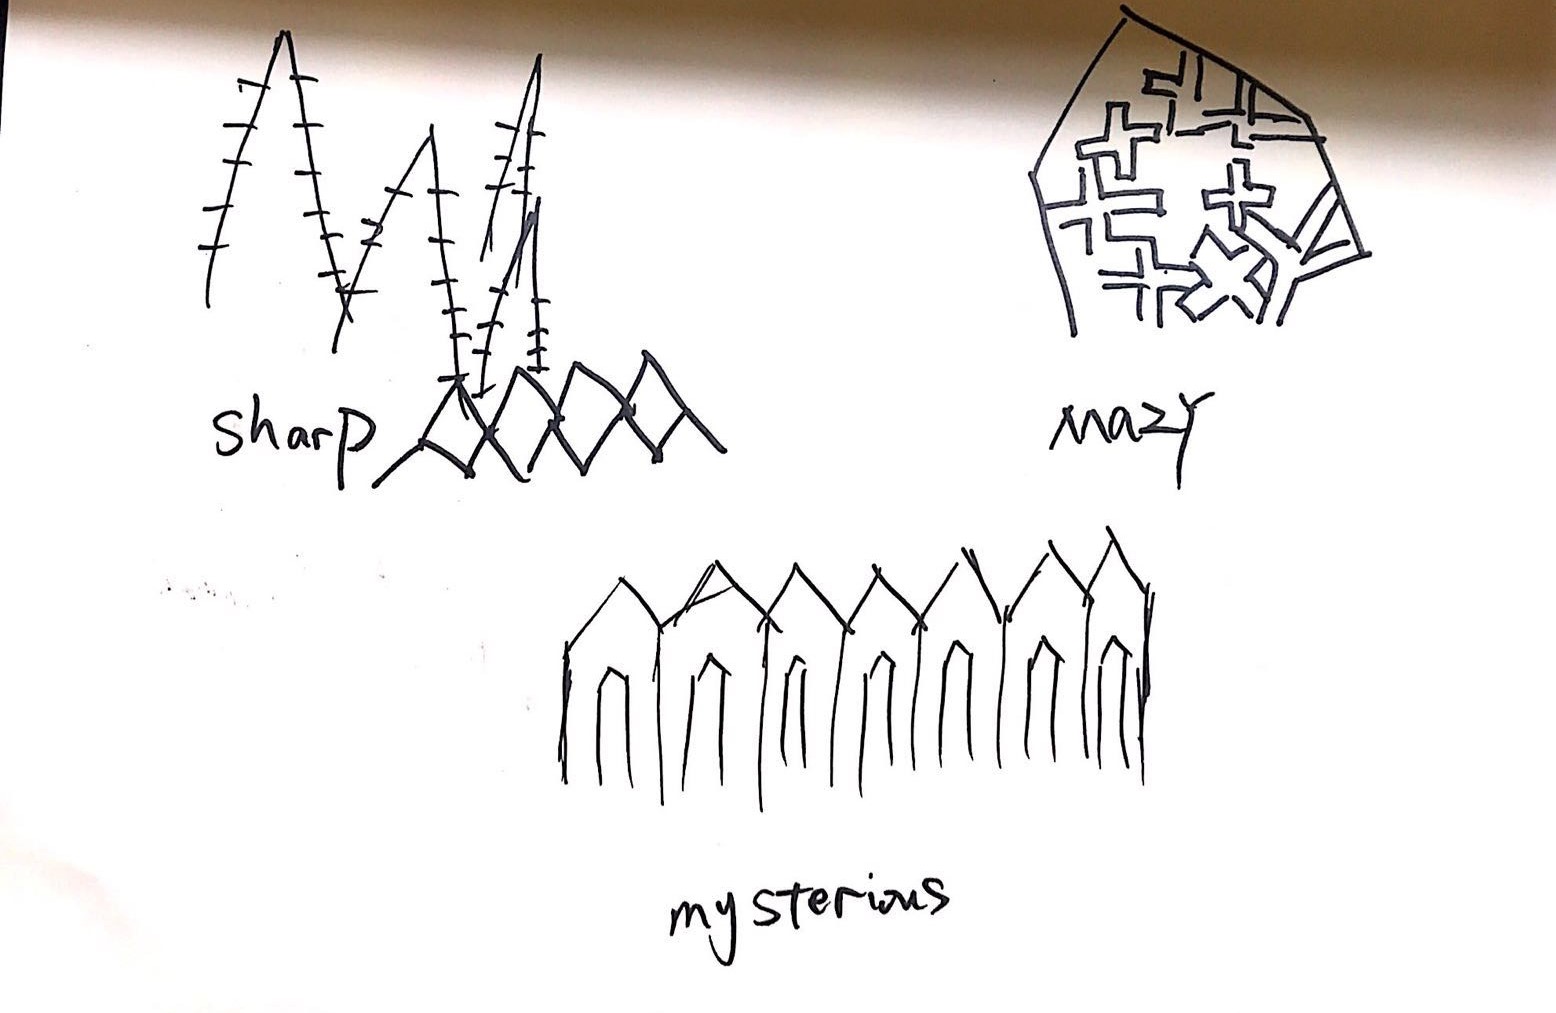 sharp
mazy
mysterious